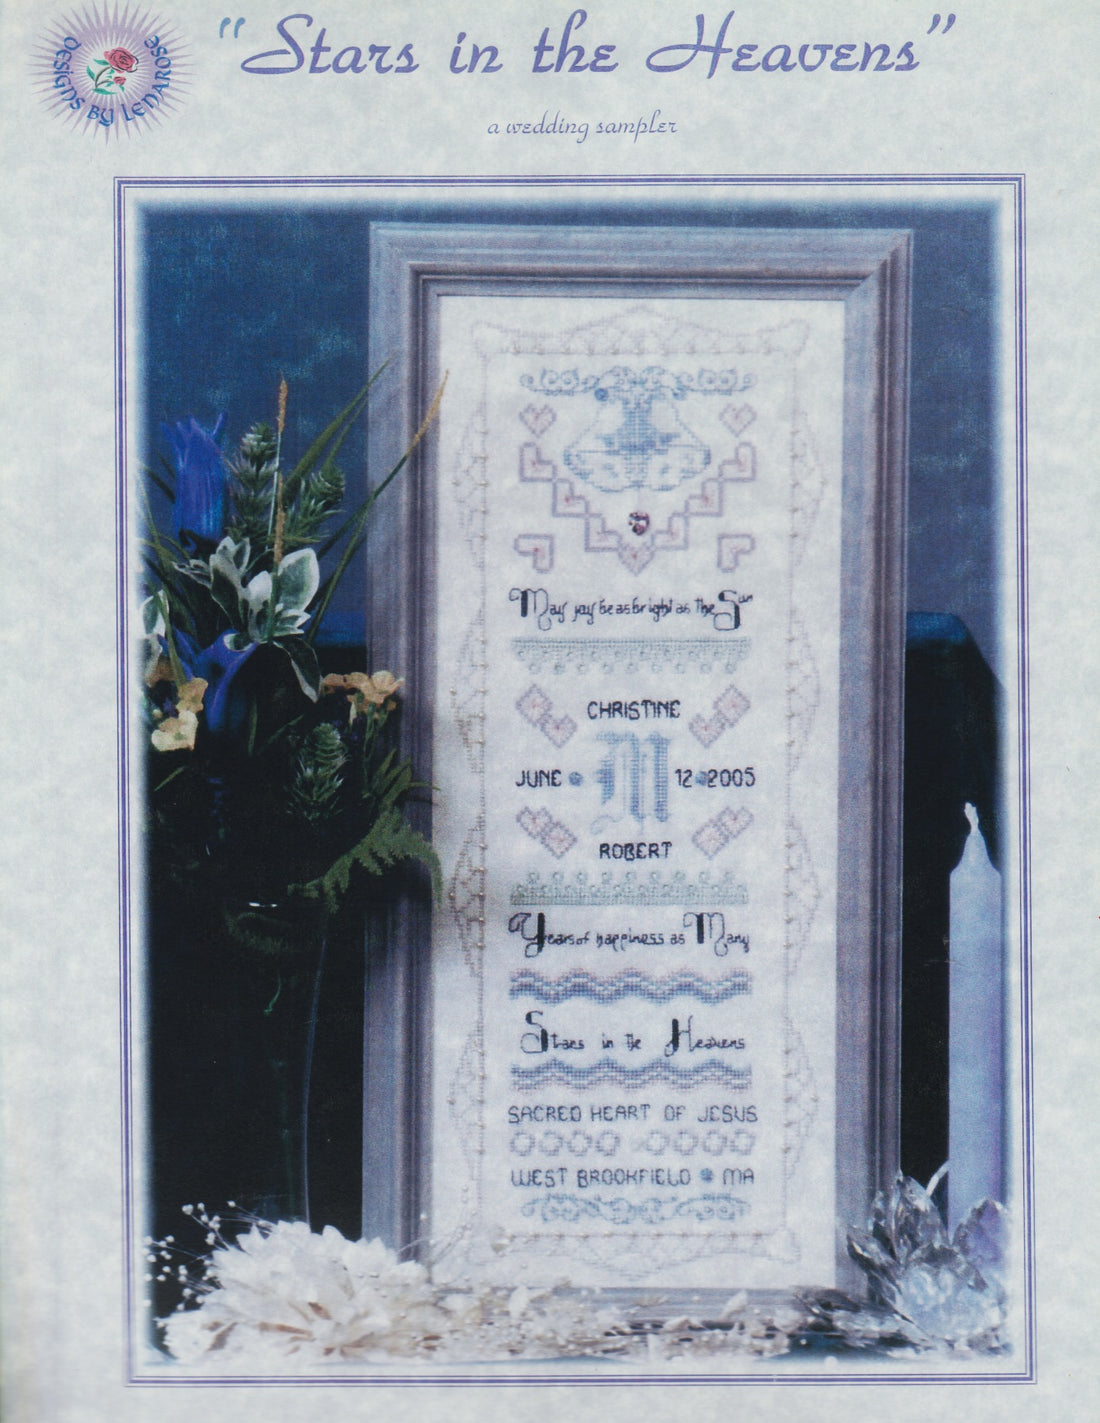 DESIGNS BY LENAROSE
"Stars in the Heavens"
a wedding sampler
May joy be as bright as the Sun
CHRISTINE
JUNE M 12 2005
ROBERT
Years of happiness as Many
Stars in the Heavens
SACRED HEART OF JESUS
WEST BROOKFIELD MA